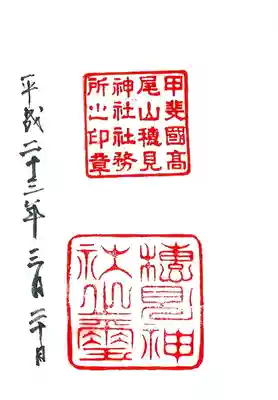 甲斐國髙
尾山穂見
神社社務
所之印章
穂見神
社之璽
平成二十三年三月二十日